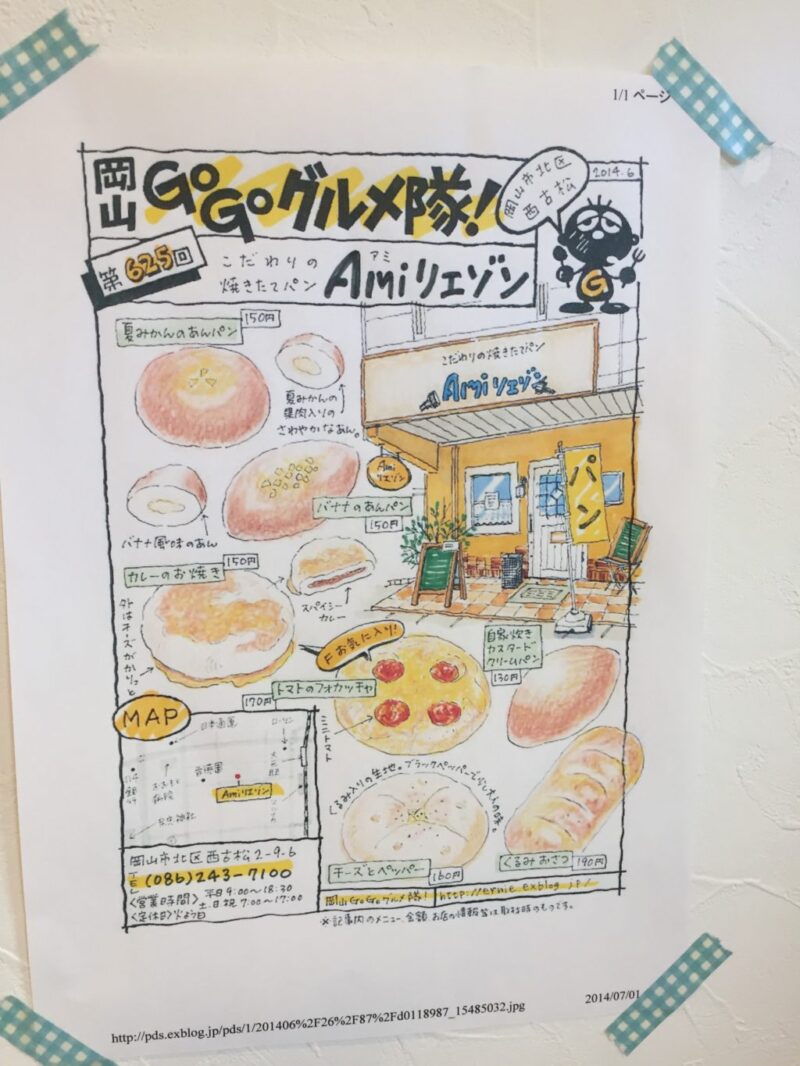 1/1 ページ
岡山 GoGoグルメ隊!
岡山市北区
西古松
2014.6
G
第625回
こだわりの
焼きたてパン
アミ
Amiリエゾン
夏みかんのあんパン
150円
夏みかんの
果肉入りの
さわやかなあん。
こだわりの焼きたてパン
Amiリエゾン
Ami
リエゾン
パン
バナナのあんパン
150円
バナナ風味のあん
カレーのお焼き
150円
スパイシー
カレー
外はチーズがカリッと
F お気に入り!
トマトのフォカッチャ
170円
ミニトマト
自家炊き
カスタード
クリームパン
130円
くるみ入りの生地。ブラックペッパーで少し大人の味。
チーズとペッパー
160円
くるみおさつ
190円
MAP
Amiリエゾン
岡山市北区西古松2-9-6
TEL (086)243-7100
<営業時間> 平日9:00〜18:30
土.日.祝 7:00〜17:00
<定休日>火よう日
岡山GoGoグルメ隊! http://ernie.exblog.jp/
※記事内のメニュー、金額、お店の情報等は取材時のものです。
http://pds.exblog.jp/pds/1/201406%2F26%2F87%2Fd0118987_15485032.jpg
2014/07/01